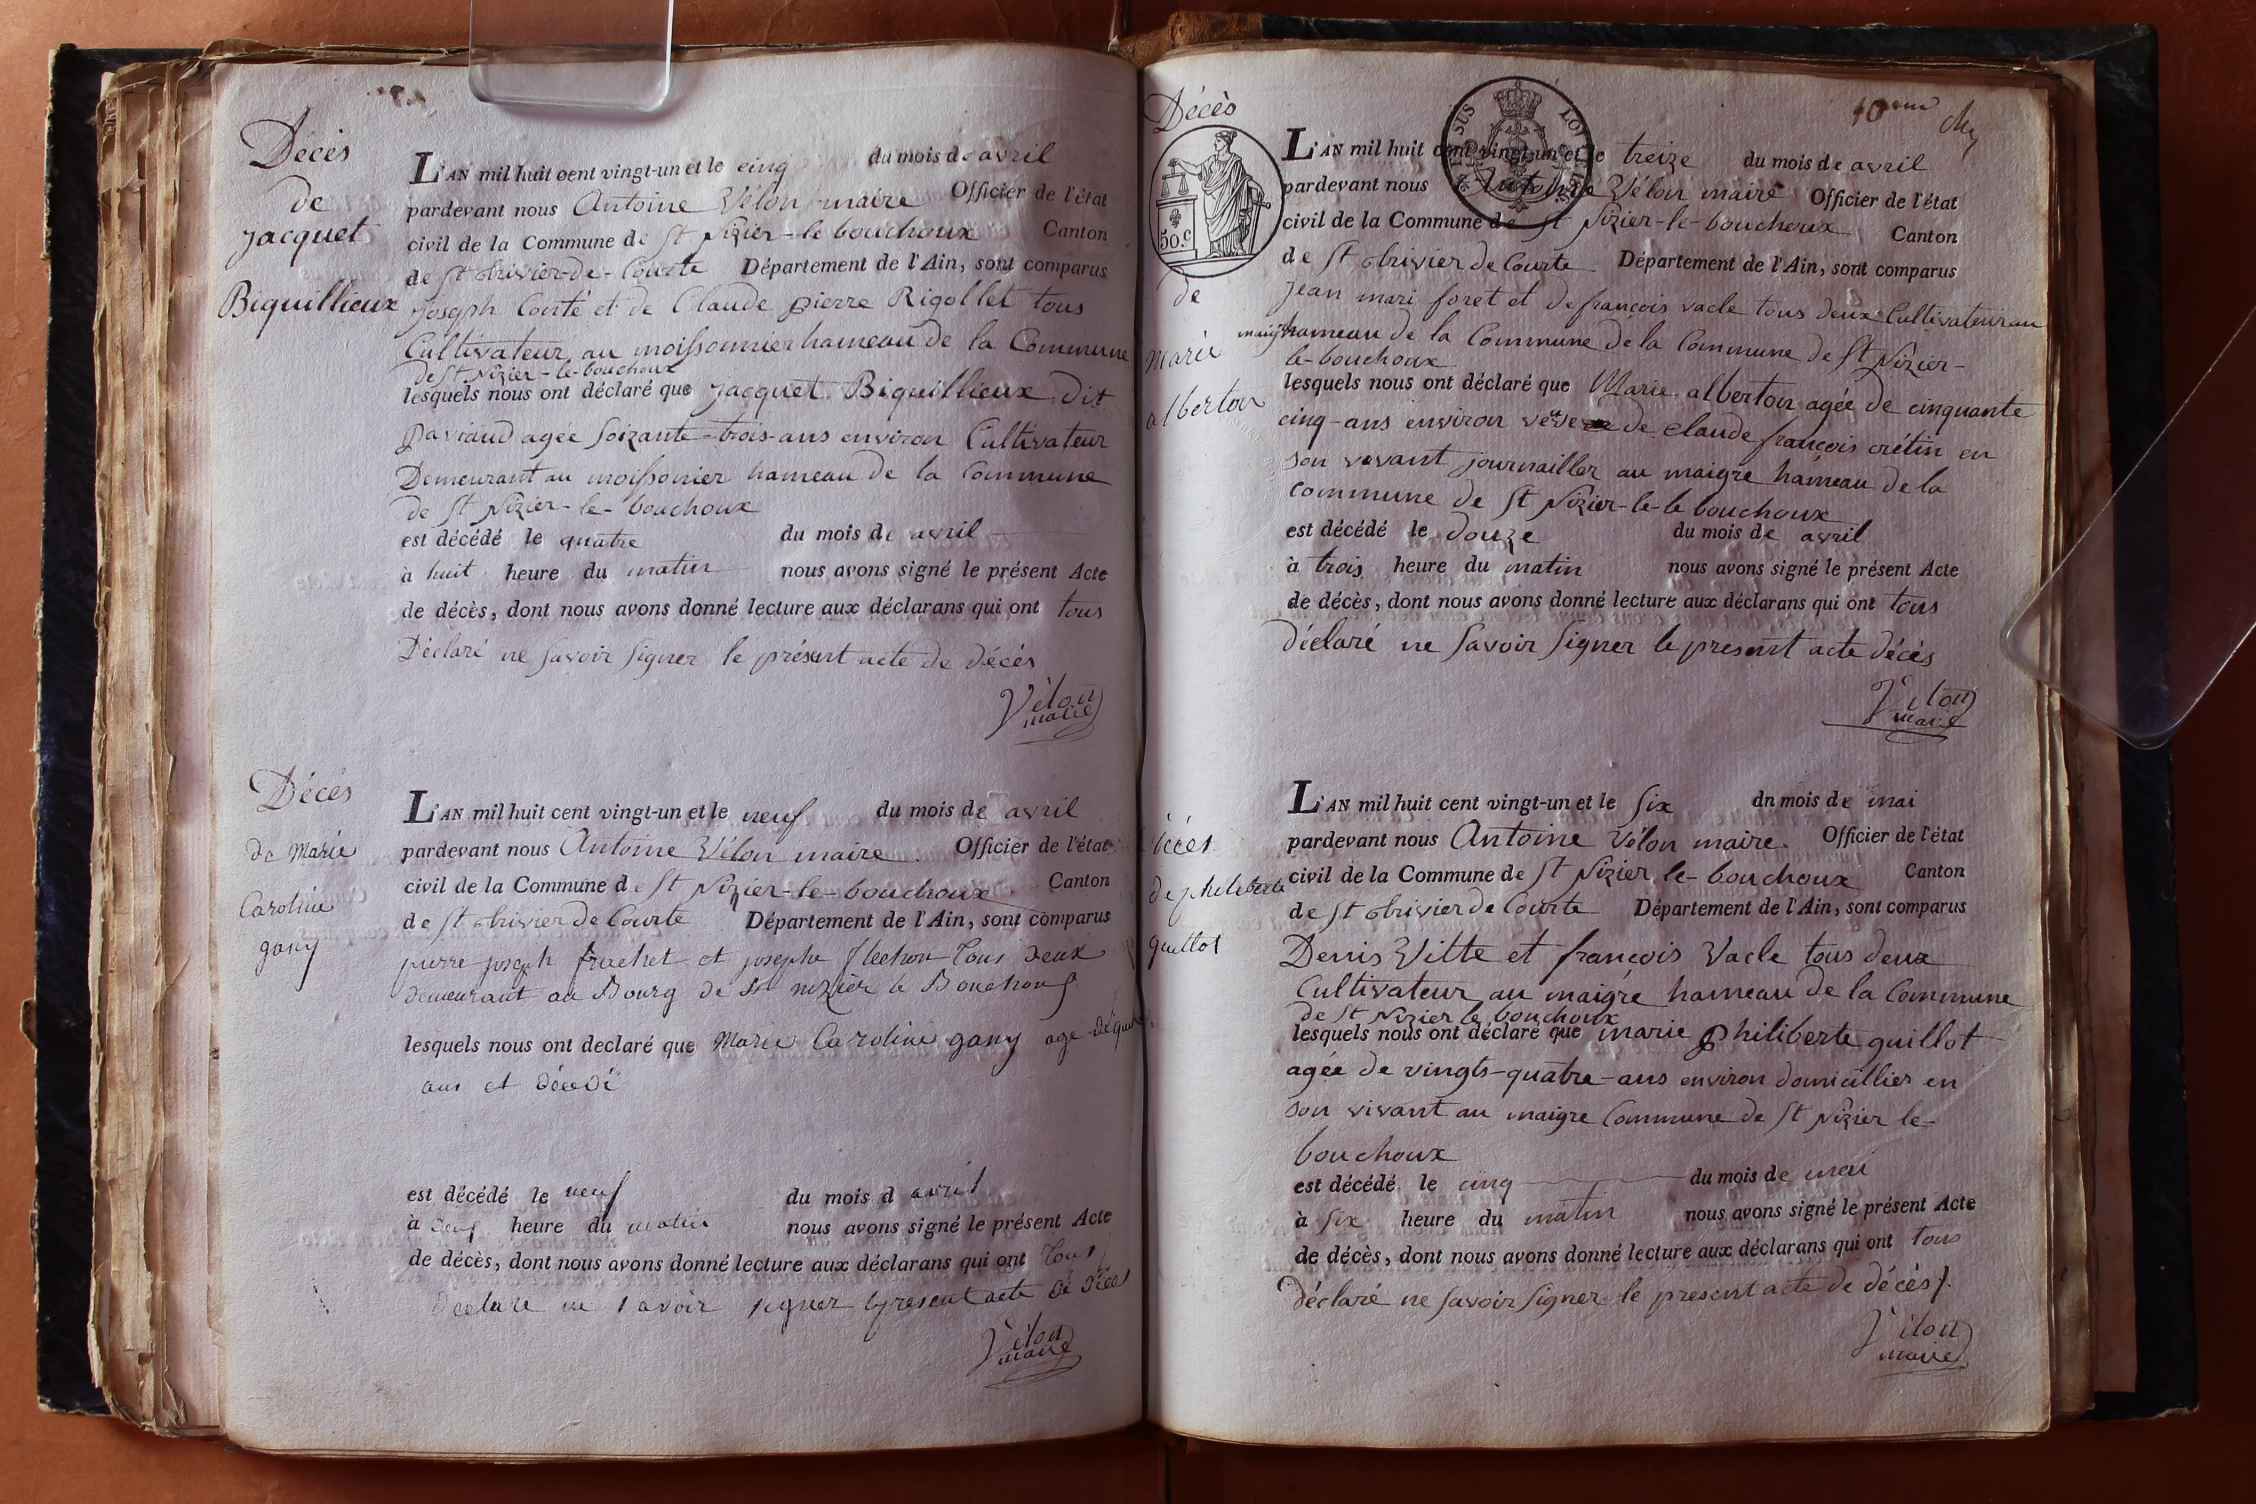 Décès
de
jacquet
Biquillieux
L'AN mil huit cent vingt-un et le cinq du mois de avril
pardevant nous Antoine Vélon maire Officier de l'état
civil de la Commune de St Nizier-le-bouchoux Canton
de St trivier-de-Courte Département de l'Ain, sont comparus
joseph Conté et de Claude pierre Rigollet tous
Cultivateur au moissonnier hameau de la Commune
de St Nizier-le-bouchoux
lesquels nous ont déclaré que jacquet Biquillieux dit
paviaud agée soizante-trois-ans environ Cultivateur
Demeurant au moissonier hameau de la Commune
de St Nizier-le-bouchoux
est décédé le quatre du mois de avril
à huit heure du matin nous avons signé le présent Acte
de décès, dont nous avons donné lecture aux déclarans qui ont tous
Déclaré ne savoir signer le présent acte de décès
Vélon
maire
Décés
de Marie
Caroline
gany
L'AN mil huit cent vingt-un et le neuf du mois de avril
pardevant nous Antoine Vélon maire Officier de l'état
civil de la Commune de St Nizier-le-bouchoux Canton
de St trivier de Courte Département de l'Ain, sont comparus
pierre joseph frachet et josephe flechon tous deux
demeurant au Bourg de St nizier le Bouchoux
lesquels nous ont declaré que Marie Caroline gany age de
ans et décédé
est décédé le neuf du mois d avril
à heure du matin nous avons signé le présent Acte
de décès, dont nous avons donné lecture aux déclarans qui ont tous
declare ne savoir signer le present acte de déces
Vélon
maire
10eme
Décès
50.c
de
Marie
alberton
L'AN mil huit cent vingt-un et le treize du mois de avril
pardevant nous Antoine Vélon maire Officier de l'état
civil de la Commune de St Nizier-le-boucheux Canton
de St trivier de Courte Département de l'Ain, sont comparus
jean mari foret et de françois vacle tous deux Cultivateur au
maigre hameau de la Commune de la Commune de St Nizier-
le-bouchoux
lesquels nous ont déclaré que Marie alberton agée de cinquante
cinq-ans environ de claude françois crétin en
son vivant journailler au maigre hameau de la
commune de St Nizier-le-le bouchoux
est décédé le douze du mois de avril
à trois heure du matin nous avons signé le présent Acte
de décès, dont nous avons donné lecture aux déclarans qui ont tous
déclaré ne savoir signer le present acte décès
Vélon
maire
décès
de philiberte
guillot
L'AN mil huit cent vingt-un et le six dn mois de mai
pardevant nous Antoine Vélon maire Officier de l'état
civil de la Commune de St Nizier le-bouchoux Canton
de St trivier de Courte Département de l'Ain, sont comparus
Denis Vitte et françois Vacle tous deux
Cultivateur au maigre hameau de la Commune
de St Nizier le bouchoux
lesquels nous ont déclaré que marie philiberte guillot
agée de vingts-quatre-ans environ domicillier en
son vivant au maigre Commune de St Nizier le-
bouchoux
est décédé le cinq du mois de mai
à six heure du matin nous avons signé le présent Acte
de décès, dont nous avons donné lecture aux déclarans qui ont tous
déclaré ne savoir signer le present acte de décès
Vélon
maire